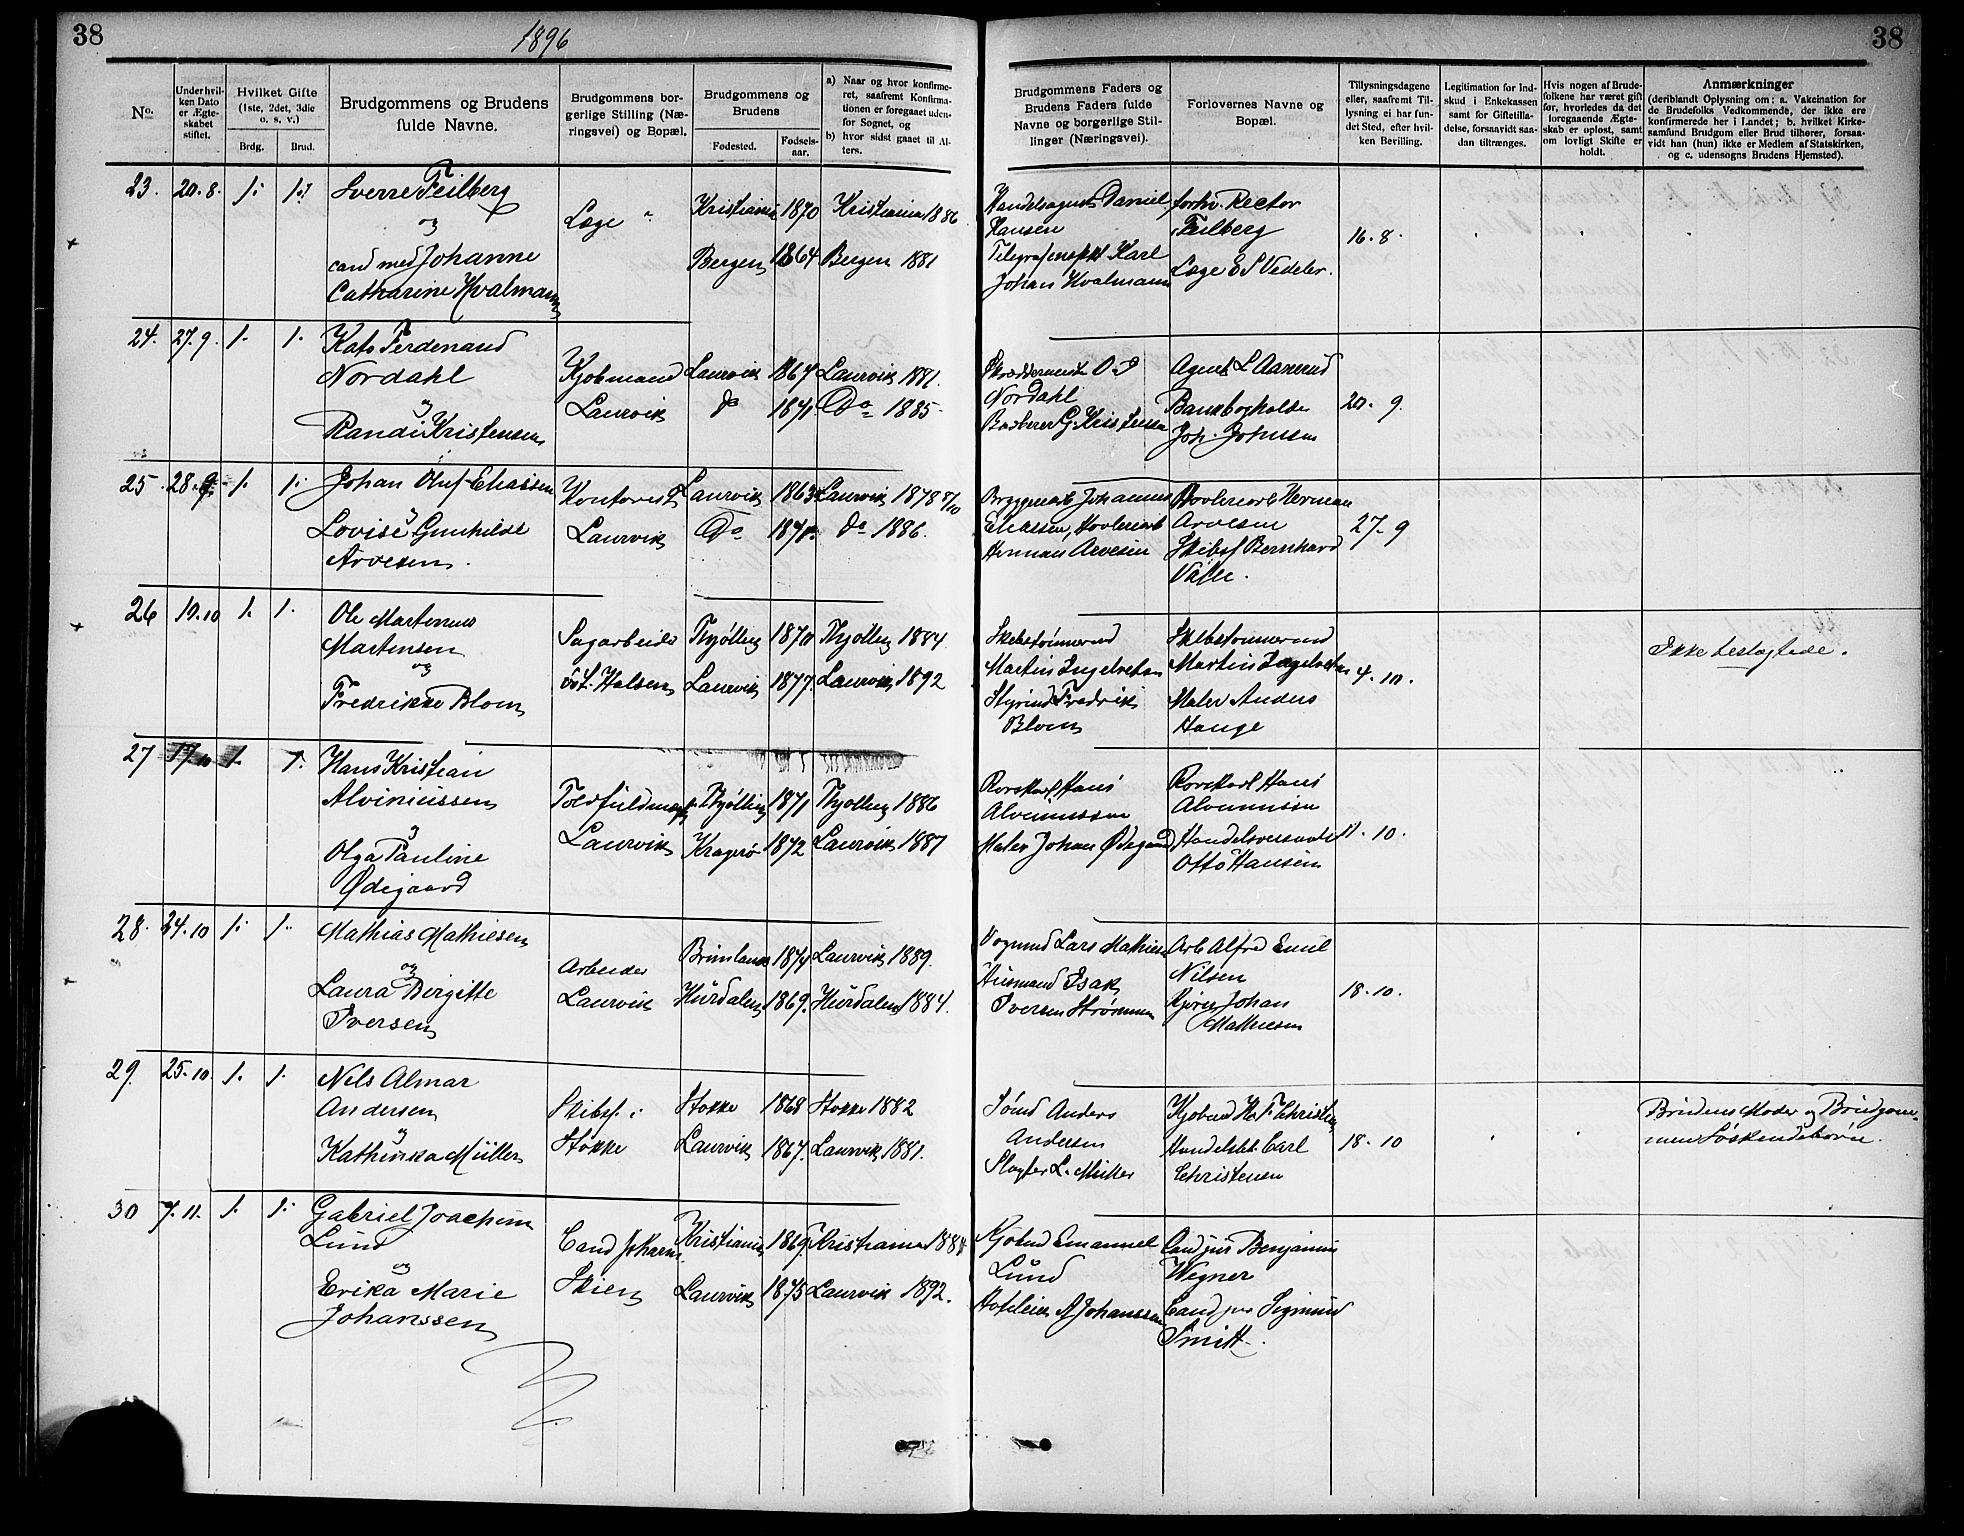 38
1896
38
No.
Under hvil-
ken Dato
er Ægte-
skabet
stiftet.
Hvilket Gifte
(1ste, 2det, 3die
o. s. v.)
Brdg.
Brud.
Brudgommens og Brudens
fulde Navne.
Brudgommens bor-
gerlige Stilling (Næ-
ringsvei) og Bopæl.
Brudgommens og
Brudens
Fødested.
Fødsels-
aar.
a) Naar og hvor konfirme-
ret, saafremt Konfirma-
tionen er foregaaet uden-
for Sognet, og
b) hvor sidst gaaet til Al-
ters.
Brudgommens Faders og
Brudens Faders fulde
Navne og borgerlige Stil-
linger (Næringsvei).
Forlovernes Navne og
Bopæl.
Tillysningsdagene
eller, saafremt Til-
lysning ei har fun-
det Sted, efter hvil-
ken Bevilling.
Legitimation for Ind-
skud i Enkekassen
samt for Giftetilla-
delse, forsaavidt saa-
dan tiltrænges.
Hvis nogen af Brude-
folkene har været gift
før, hvorledes da det
foregaaende Ægte-
skab er opløst, samt
om lovligt Skifte er
holdt.
Anmærkninger
(deriblandt Oplysning om: a. Vakcination for
de Brudefolks Vedkommende, der ikke ere
konfirmerede her i Landet; b. hvilket Kirke-
samfund Brudgom eller Brud tilhører, forsaa-
vidt han (hun) ikke er Medlem af Statskirken,
og c. udensogns Brudens Hjemsted).
23. 20.8. 1. 1.
Sverre Feilberg
og
cand med Johanne
Catharine Hvalmann
Læge
Kristiania 1870 Kristiania 1886
Bergen 1864 Bergen 1881
Handelsagent Daniel
Hansen
Karl
Johan Hvalmann
forhv. Rector
Feilberg
Læge E S Vedeler.
16.8.
24. 27.9. 1. 1.
Kato Ferdenand
Nordahl
og
Randi Kristensen
Kjøbmand
Laurvik
Laurvik 1867 Laurvik 1881.
do 1871. Do 1885.
O. J
Nordahl
Barberer G. Kristensen
Agent L Aanerud
Bankbogholder
Joh. Johnsen
20.9.
25. 28.9. 1. 1.
Johan Oluf Eliassen
og
Lovise Gunhilde
Arvesen.
Kontorist
Laurvik
Laurvik 1863 Laurvik 1878 9/10
Do 1871. do 1886.
Bryggeriarb Johannes
Eliassen, Høvleriarb
Herman Arvesen
Høvleriarb Herman
Arvesen
Skibsf Bernhard
Valle.
27.9
26 10.10 1. 1.
Ole Martenius
Martensen
og
Fredrikke Blom
Sagarbeider
Øst. Halsen
Thjølling 1870 Thjølling 1884
Laurvik 1877. Laurvik 1892
Skibstømmermd
Martin Ingebretsen
Styrmd Fredrik
Blom
Skibstømmermd
Martin Ingebretsen
Maler Anders
Hauge
4.10.
Ikke beslægtede.
27 17.10 1. 1.
Hans Kristian
Alviniussen
og
Olga Pauline
Ødegaard
Toldfuldmægtig
Laurvik
Thjølling 1871 Thjølling 1886
Kragerø 1872 Laurvik 1887
Rorskarl Hans
Alviniussen
Maler Johan Ødegaard
Rorskarl Hans
Alviniussen
Otto Hansen
11.10.
28. 24.10 1. 1.
Mathias Mathiesen
og
Laura Birgitte
Iversen
Arbeider
Laurvik
Brunlanes 1874 Laurvik 1889.
Hurdalen 1869. Hurdalen 1884.
Vognmd Lars Mathiesen
Husmand Isak
Iversen Strømmen
Arb Alfred Emil
Nilsen
Kjører Johan
Mathiesen
18.10.
29. 25.10. 1. 1.
Nils Almar
Andersen
og
Kathinka Müller
Skibsf.
Stokke
Stokke 1868 Stokke 1882
Laurvik 1867. Laurvik 1881.
Sømd Anders
Andersen
Slagter L. Müller
Kjøbmd H. F. Christensen
Handelsbt. Carl
Christensen
18.10
Brudens Moder og Brudgom-
men Søskendebørn.
30 7.11. 1. 1.
Gabriel Joachim
Lund
og
Erika Marie
Johanssen
Cand
Skien
Kristiania 1869. Kristiania 1884
Laurvik 1875 Laurvik 1892.
Kjøbmd Emanuel
Lund
Hoteleier A Johanssen
Cand jur Benjamin
Wegner
Cand jur Sigmund
Smitt.